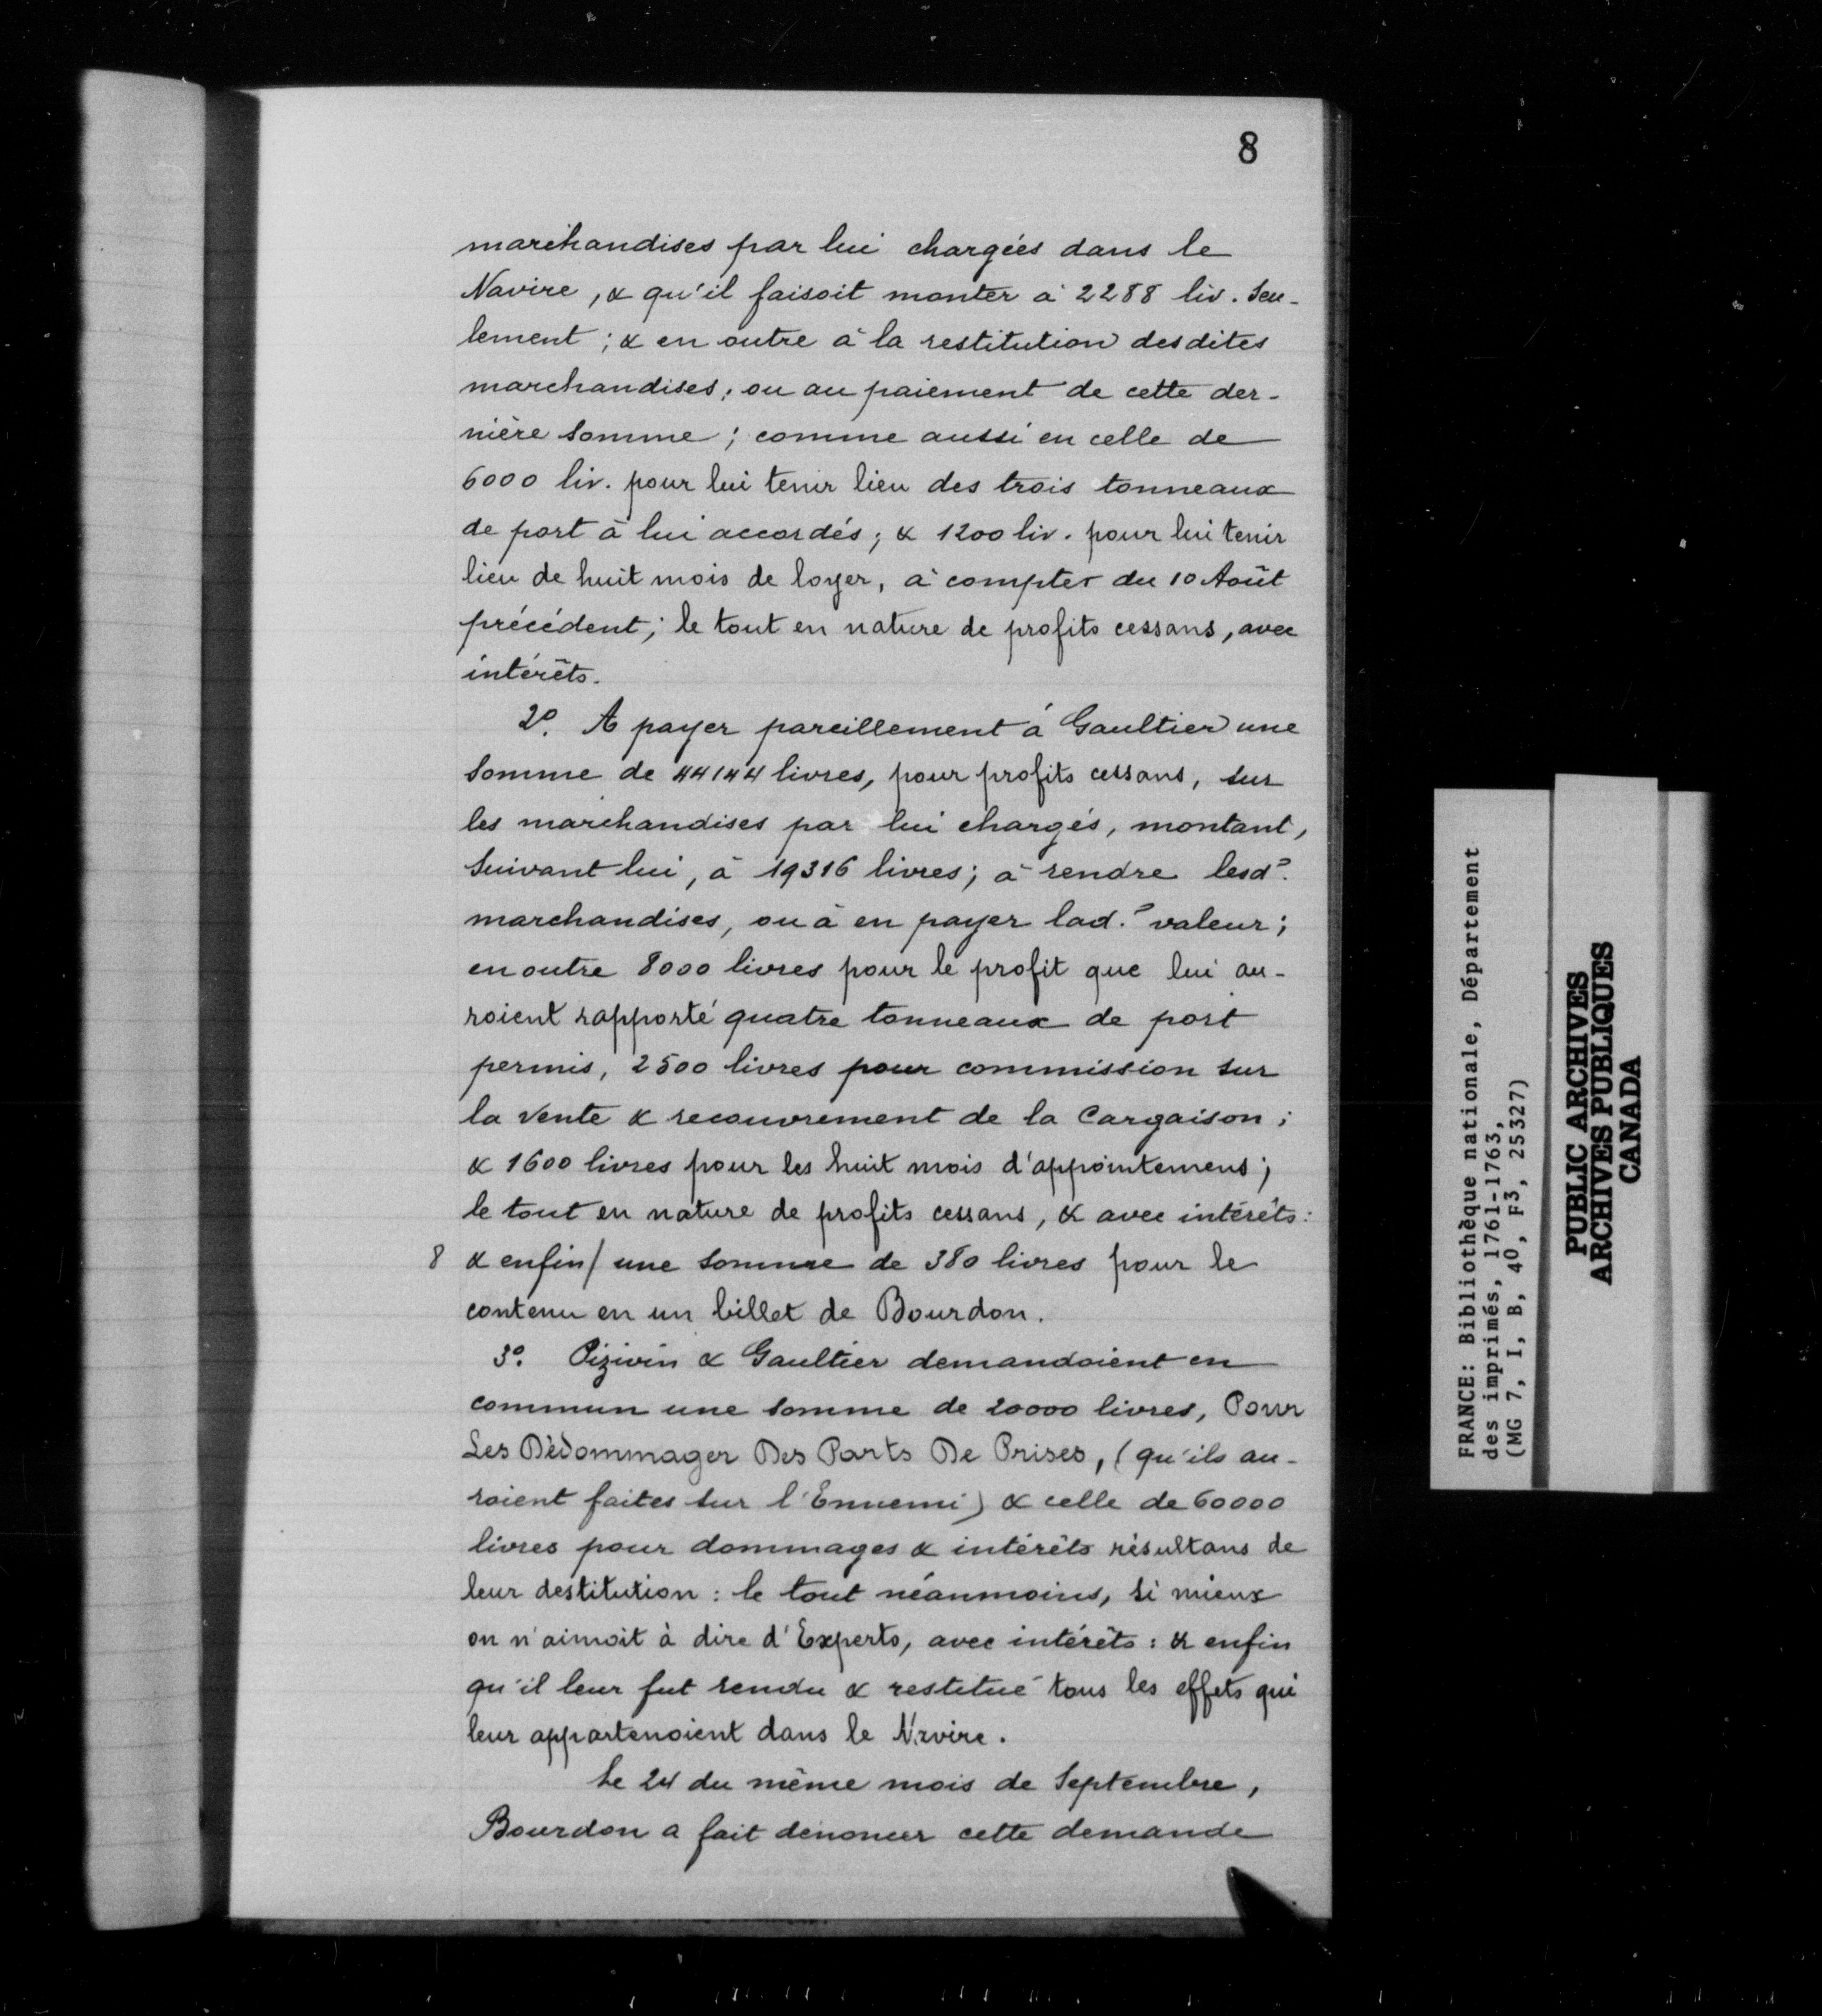 8
marchandises par lui chargées dans le
Navire, & qu'il faisoit monter à 2288 liv. seu-
lement ; & en outre à la restitution desdites
marchandises, ou au paiement de cette der-
nière somme ; comme aussi en celle de
6000 liv. pour lui tenir lieu des trois tonneaux
de port à lui accordés ; & 1200 liv. pour lui tenir
lieu de huit mois de loyer, à compter du 10 Août
précédent ; le tout en nature de profits cessans, avec
intérêts.
2º. A payer pareillement à Gaultier une
somme de 44144 livres, pour profits cessans, sur
les marchandises par lui chargés, montant,
suivant lui, à 19316 livres ; à rendre lesd.
marchandises, ou à en payer lad. valeur ;
en outre 8000 livres pour le profit que lui au-
roient rapporté quatre tonneaux de port
permis, 2500 livres pour commission sur
la vente & recouvrement de la Cargaison ;
& 1600 livres pour les huit mois d'appointemens ;
le tout en nature de profits cessans, & avec intérêts :
8 & enfin / une somme de 380 livres pour le
contenu en un billet de Bourdon.
3º. Pizivin & Gaultier demandoient en
commun une somme de 20000 livres, Pour
Les Dédommager Des Parts De Prises, (qu'ils au-
roient faites sur l'Ennemi) & celle de 60000
livres pour dommages & intérêts résultans de
leur destitution : le tout néanmoins, si mieux
on n'aimoit à dire d'Experts, avec intérêts : & enfin
qu'il leur fut rendu & restitué tous les effets qui
leur appartenoient dans le Navire.
Le 24 du même mois de Septembre,
Bourdon a fait dénoncer cette demande
FRANCE: Bibliothèque nationale, Département
des imprimés, 1761-1763,
(MG 7, I, B, 40, F3, 25327)
PUBLIC ARCHIVES
ARCHIVES PUBLIQUES
CANADA